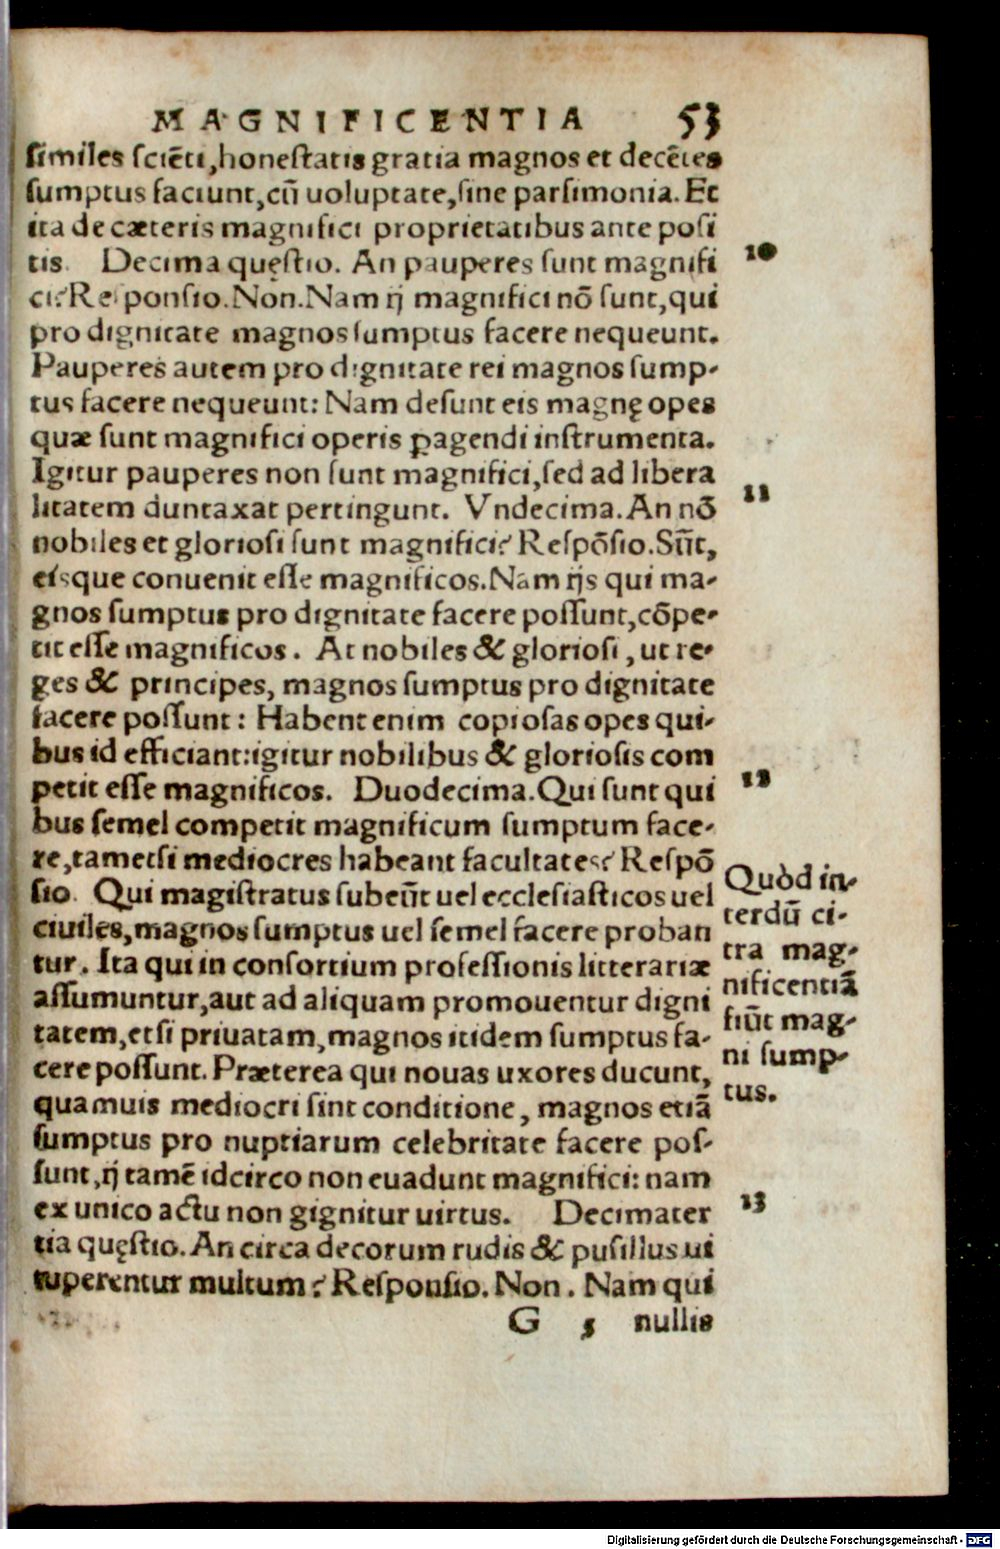 MAGNIFICENTIA 53
ſimiles sciẽti,honeſtatis gratia magnos et decẽtes
ſumptus faciunt,cũ uoluptate,ſine parſimonia. Et
ita de cæteris magnifici proprietatibus ante poſi
tis. Decima quęſtio. An pauperes ſunt magnifi
ci? Reſponſio. Non. Nam ij magnifici nõ ſunt,qui
pro dignitate magnos ſumptus facere nequeunt.
Pauperes autem pro dignitate rei magnos ſump-
tus facere nequeunt: Nam deſunt eis magnę opes
quæ ſunt magnifici operis ꝑagendi inſtrumenta.
Igitur pauperes non ſunt magnifici,ſed ad libera
litatem duntaxat pertingunt. Vndecima. An nõ
nobiles et glorioſi ſunt magnifici? Reſpõſio. Sũt,
eisque conuenit eſſe magnificos. Nam ijs qui ma-
gnos ſumptus pro dignitate facere poſſunt,cõpe-
tit eſſe magnificos. At nobiles & glorioſi, ut re-
ges & principes, magnos ſumptus pro dignitate
facere poſſunt: Habent enim copioſas opes qui-
bus id efficiant:igitur nobilibus & glorioſis com
petit eſſe magnificos. Duodecima. Qui ſunt qui
bus ſemel competit magnificum ſumptum face-
re,tametſi mediocres habeant facultates? Reſpõ
ſio. Qui magiſtratus ſubeũt uel eccleſiaſticos uel
ciuiles,magnos ſumptus uel ſemel facere proban
tur. Ita qui in conſortium profeſſionis litterariæ
aſſumuntur,aut ad aliquam promouentur digni
tatem,etſi priuatam,magnos itidem ſumptus fa-
cere poſſunt. Præterea qui nouas uxores ducunt,
quamuis mediocri ſint conditione, magnos etiã
ſumptus pro nuptiarum celebritate facere poſ-
ſunt,ij tamẽ idcirco non euadunt magnifici: nam
ex unico actu non gignitur uirtus. Decimater
tia quęſtio. An circa decorum rudis & puſillus ui
tuperentur multum? Reſponſio. Non. Nam qui
G 5 nullis
10
11
12
Quòd in-
terdũ ci-
tra mag-
nificentiã
fiũt mag-
ni ſump-
tus.
13
Digitalisierung gefördert durch die Deutsche Forschungsgemeinschaft - DFG